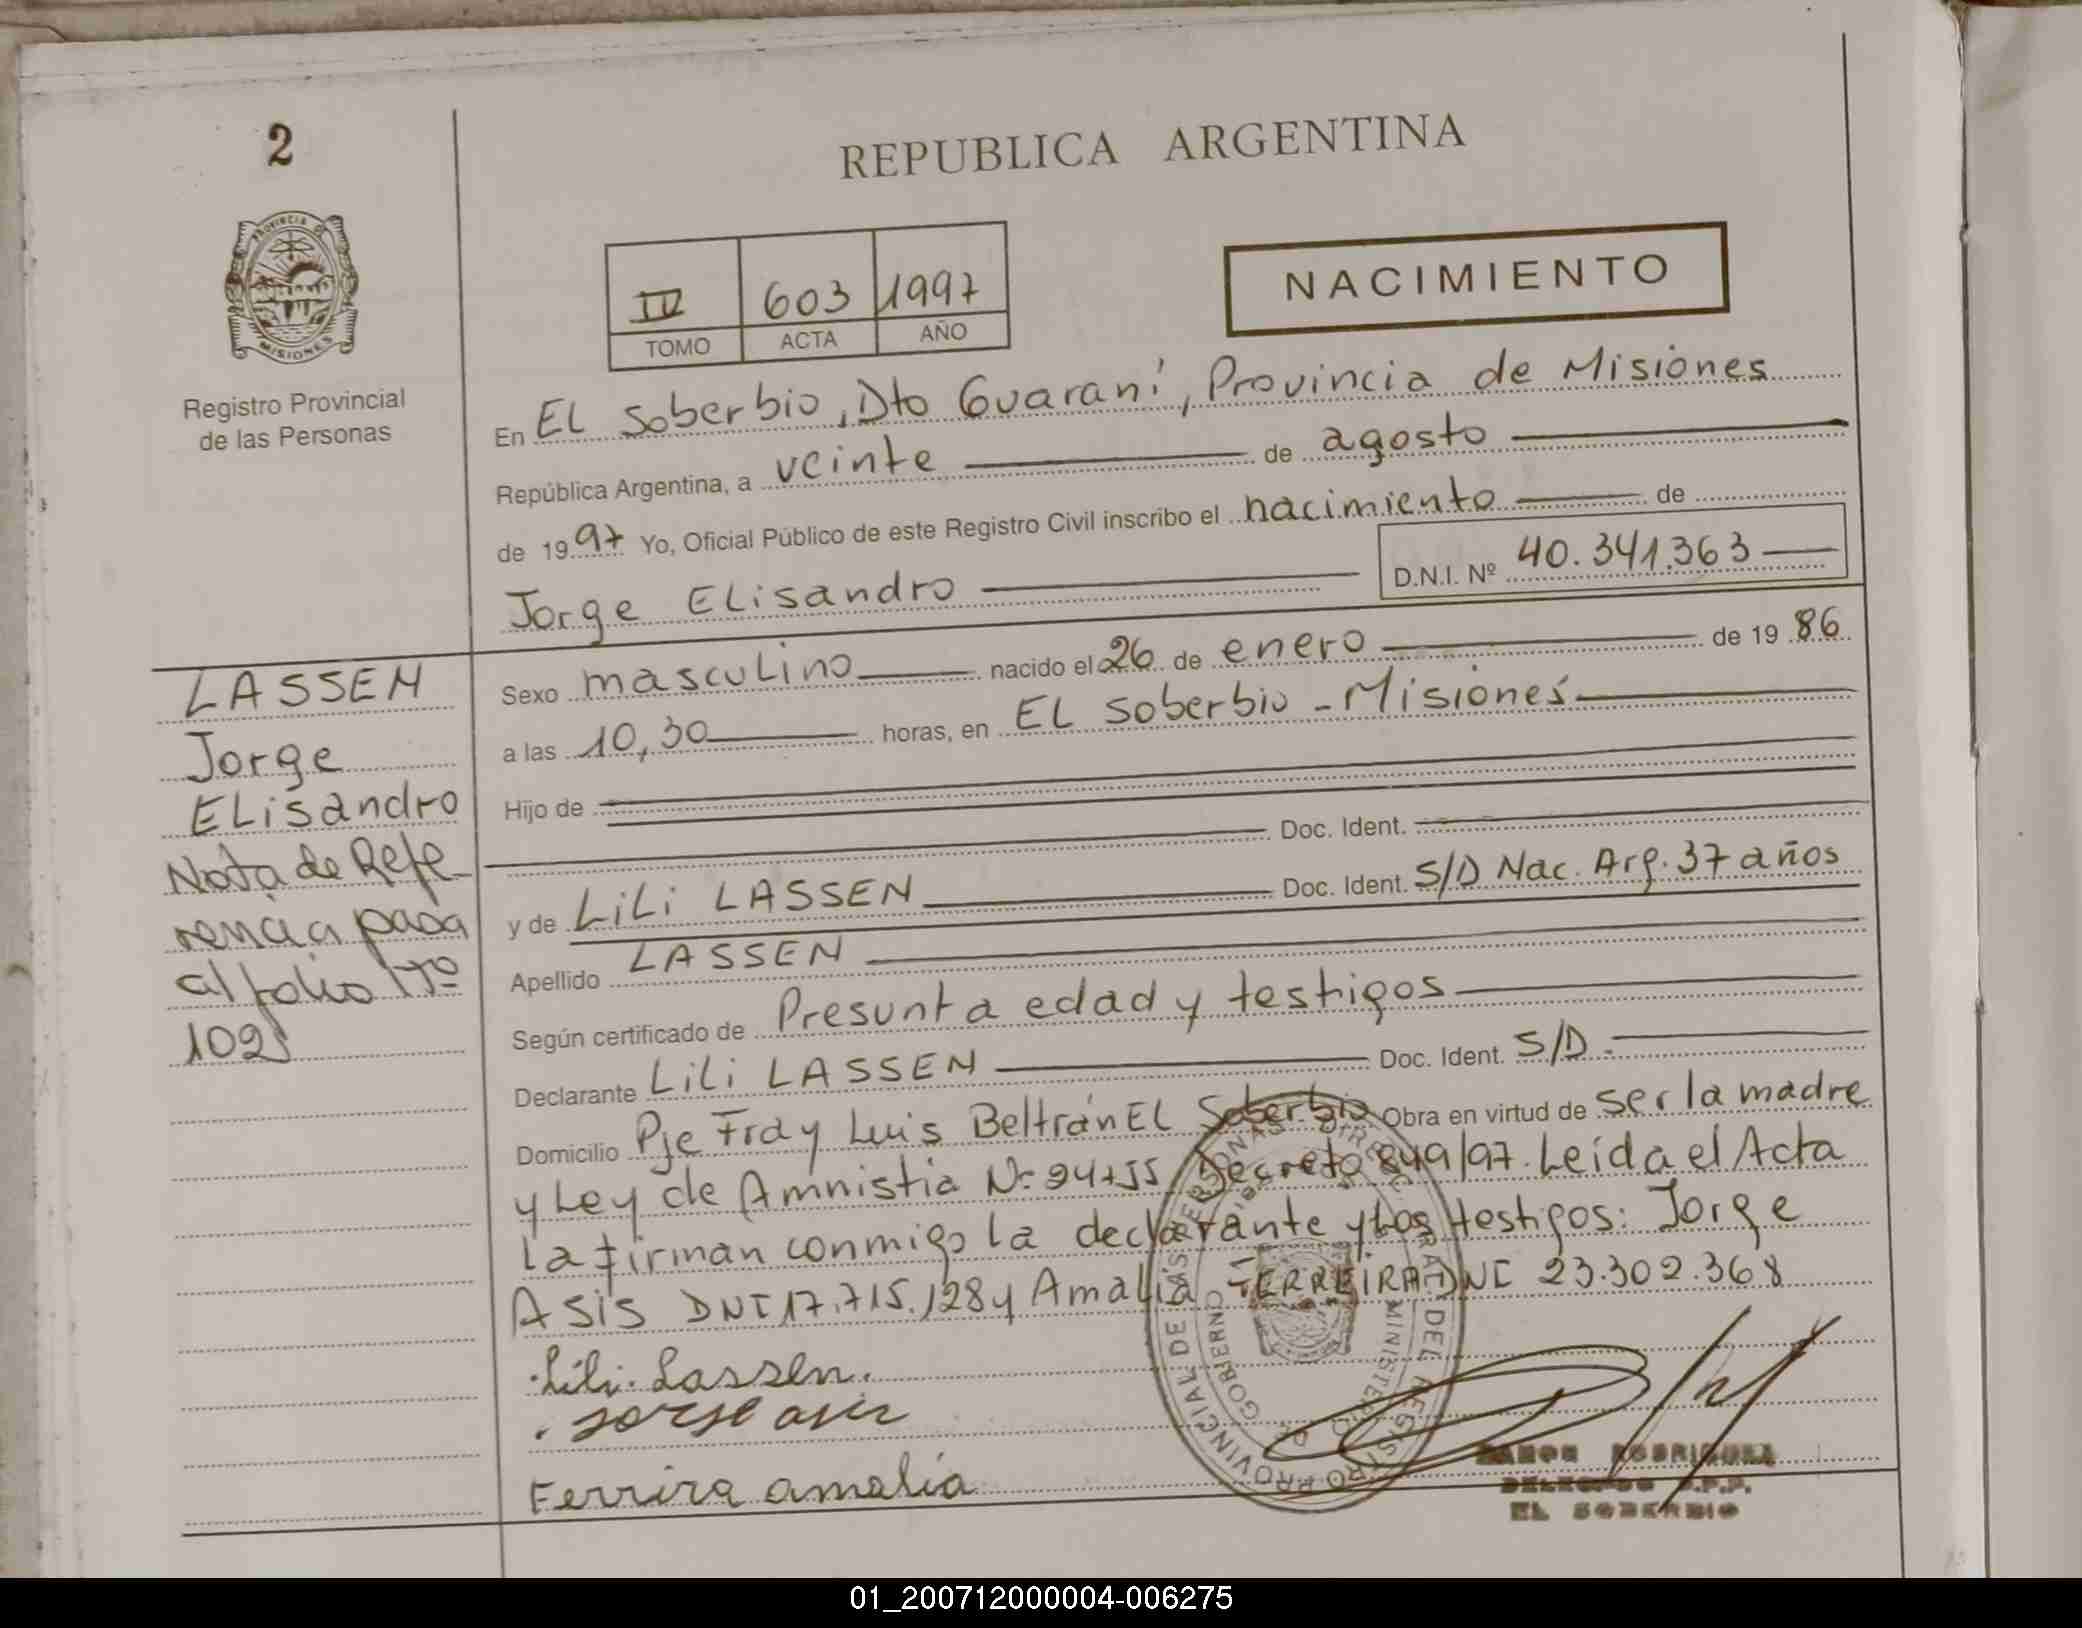 2
REPUBLICA ARGENTINA
PROVINCIA DE
MISIONES
Registro Provincial
de las Personas
IV 603 1997
TOMO ACTA AÑO
NACIMIENTO
En EL Soberbio, Dto Guaraní, Provincia de Misiones
República Argentina, a veinte de agosto
de 1997 Yo, Oficial Público de este Registro Civil inscribo el nacimiento de
Jorge ELisandro D.N.I. Nº 40.341.363
LASSEN
Jorge
ELisandro
Nota de Refe
rencia pasa
al folio Nº
102
Sexo masculino nacido el 26 de enero de 1986
a las 10,30 horas, en EL Soberbio - Misiones
Hijo de
Doc. Ident.
y de LiLi LASSEN Doc. Ident. S/D Nac. Arg. 37 años
Apellido LASSEN
Según certificado de Presunta edad y testigos
Declarante LiLi LASSEN Doc. Ident. S/D.
Domicilio Pje Fray Luis Beltrán EL Soberbio Obra en virtud de ser la madre
y Ley de Amnistia Nº 24755 Decreto 849/97. Leída el Acta
la firman conmigo la declarante y los testigos: Jorge
ASIS DNI 17.715.128 y Amalia FERREIRA DNI 23.302.368
Lili Lassen.
Jorge asis
Ferrira amalia
REGISTRO PROVINCIAL DE LAS PERSONAS
RAMON RODRIGUEZ
DELEGADO R.P.P.
EL SOBERBIO
01_200712000004-006275